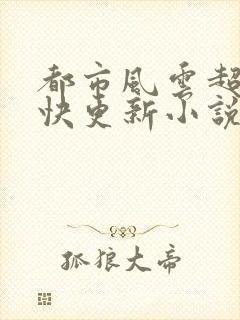 都市風雲超
快更新小說
孤狼大帝